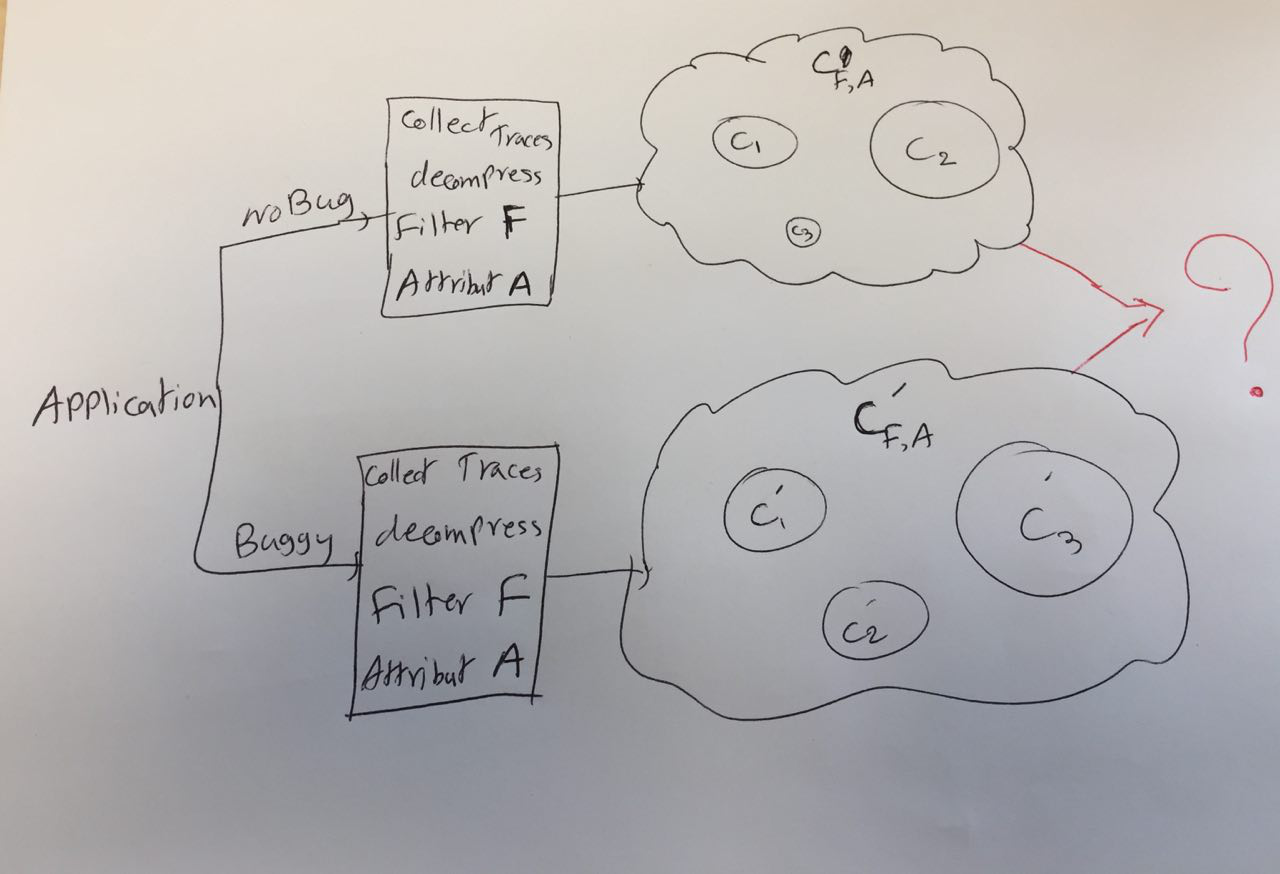 Application
noBug
Collect Traces
decompress
Filter F
Attribut A
C F,A
C1
C2
C3
Buggy
Collect Traces
decompress
Filter F
Attribut A
C′ F,A
C′1
C′2
C′3
?